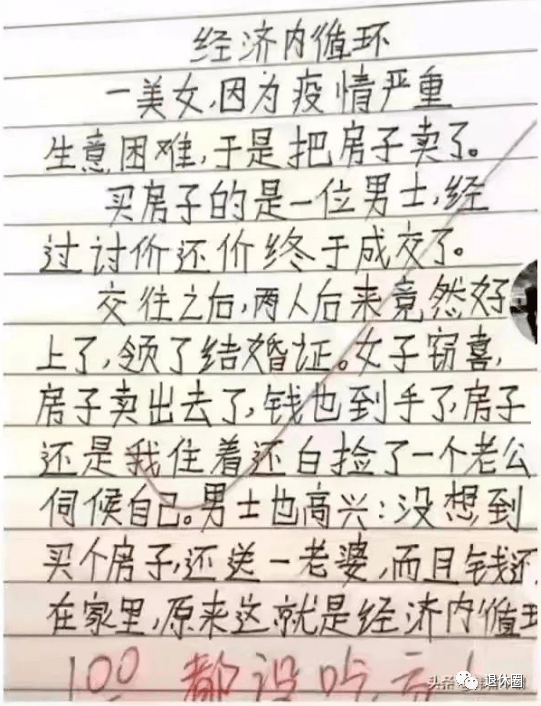 经济内循环
一美女,因为疫情严重
生意困难,于是把房子卖了。
买房子的是一位男士,经
过讨价还价终于成交了。
交往之后,两人后来竟然好
上了,领了结婚证。女子窃喜,
房子卖出去了,钱也到手了,房子
还是我住着还白捡了一个老公
伺候自己。男士也高兴:没想到
买个房子,还送一老婆,而且钱还
在家里,原来这就是经济内循环
100 都没吃亏!
退休圈